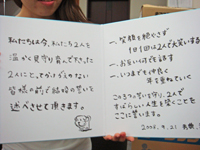 私たちは今、私たち2人を
温かく見守り育んで下さった
2人にとってかけがえのない
皆様の前で結婚の誓いを
述べさせて頂きます。
一、笑顔を絶やさず
1日1回は2人で大笑いする
一、お互い何でも話す
一、いつまでも仲良く
年を重ねていく
この3つの誓いを守り、2人で
すばらしい人生を築くことを
ここに誓います。